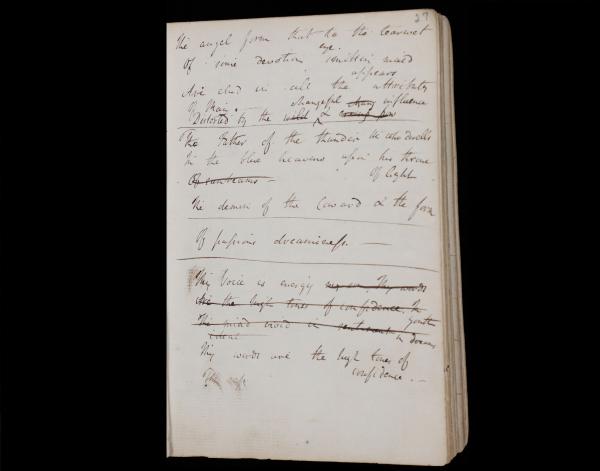 27
The angel form that to the tearwet
eye
Of some devotion smitten maid
appears
Are clad in all the attributes
Of Man.
changeful influence
Distorted by the wild &
The Father of the thunder He who dwells
In the blue heavens upon his throne
Of sunbeams — Of light
The demon of the Coward & the form
Of passions dreaminess —
My Voice is energy My words
Are the high tones of confidence. In youth
The mind vivid in sentiment in dreams
ideal
My words are the high tones of
confidence. —